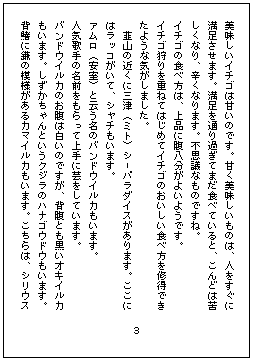 美味しいイチゴは甘いのです。甘く美味しいものは、人をすぐに
満足させます。満足を通り過ぎてまだ食べていると、こんどは苦
しくなり、辛くなります。不思議なものですね。
イチゴの食べ方は、上品に腹八分がよいようです。
イチゴ狩りを重ねてはじめてイチゴのおいしい食べ方を修得でき
たような気がしました。
韮山の近くに三津（ミト）シーパラダイスがあります。ここに
はラッコがいて、シャチもいます。
アムロ（安室）と云う名のバンドウイルカもいます。
人気歌手の名前をもらって上手に芸をしています。
バンドウイルカのお腹は白いのですが、背腹とも黒いオキイルカ
もいます。しずかちゃんというクジラのハナゴウドウもいます。
背鰭に鎌の模様があるカマイルカもいます。こちらは、シリウス
3